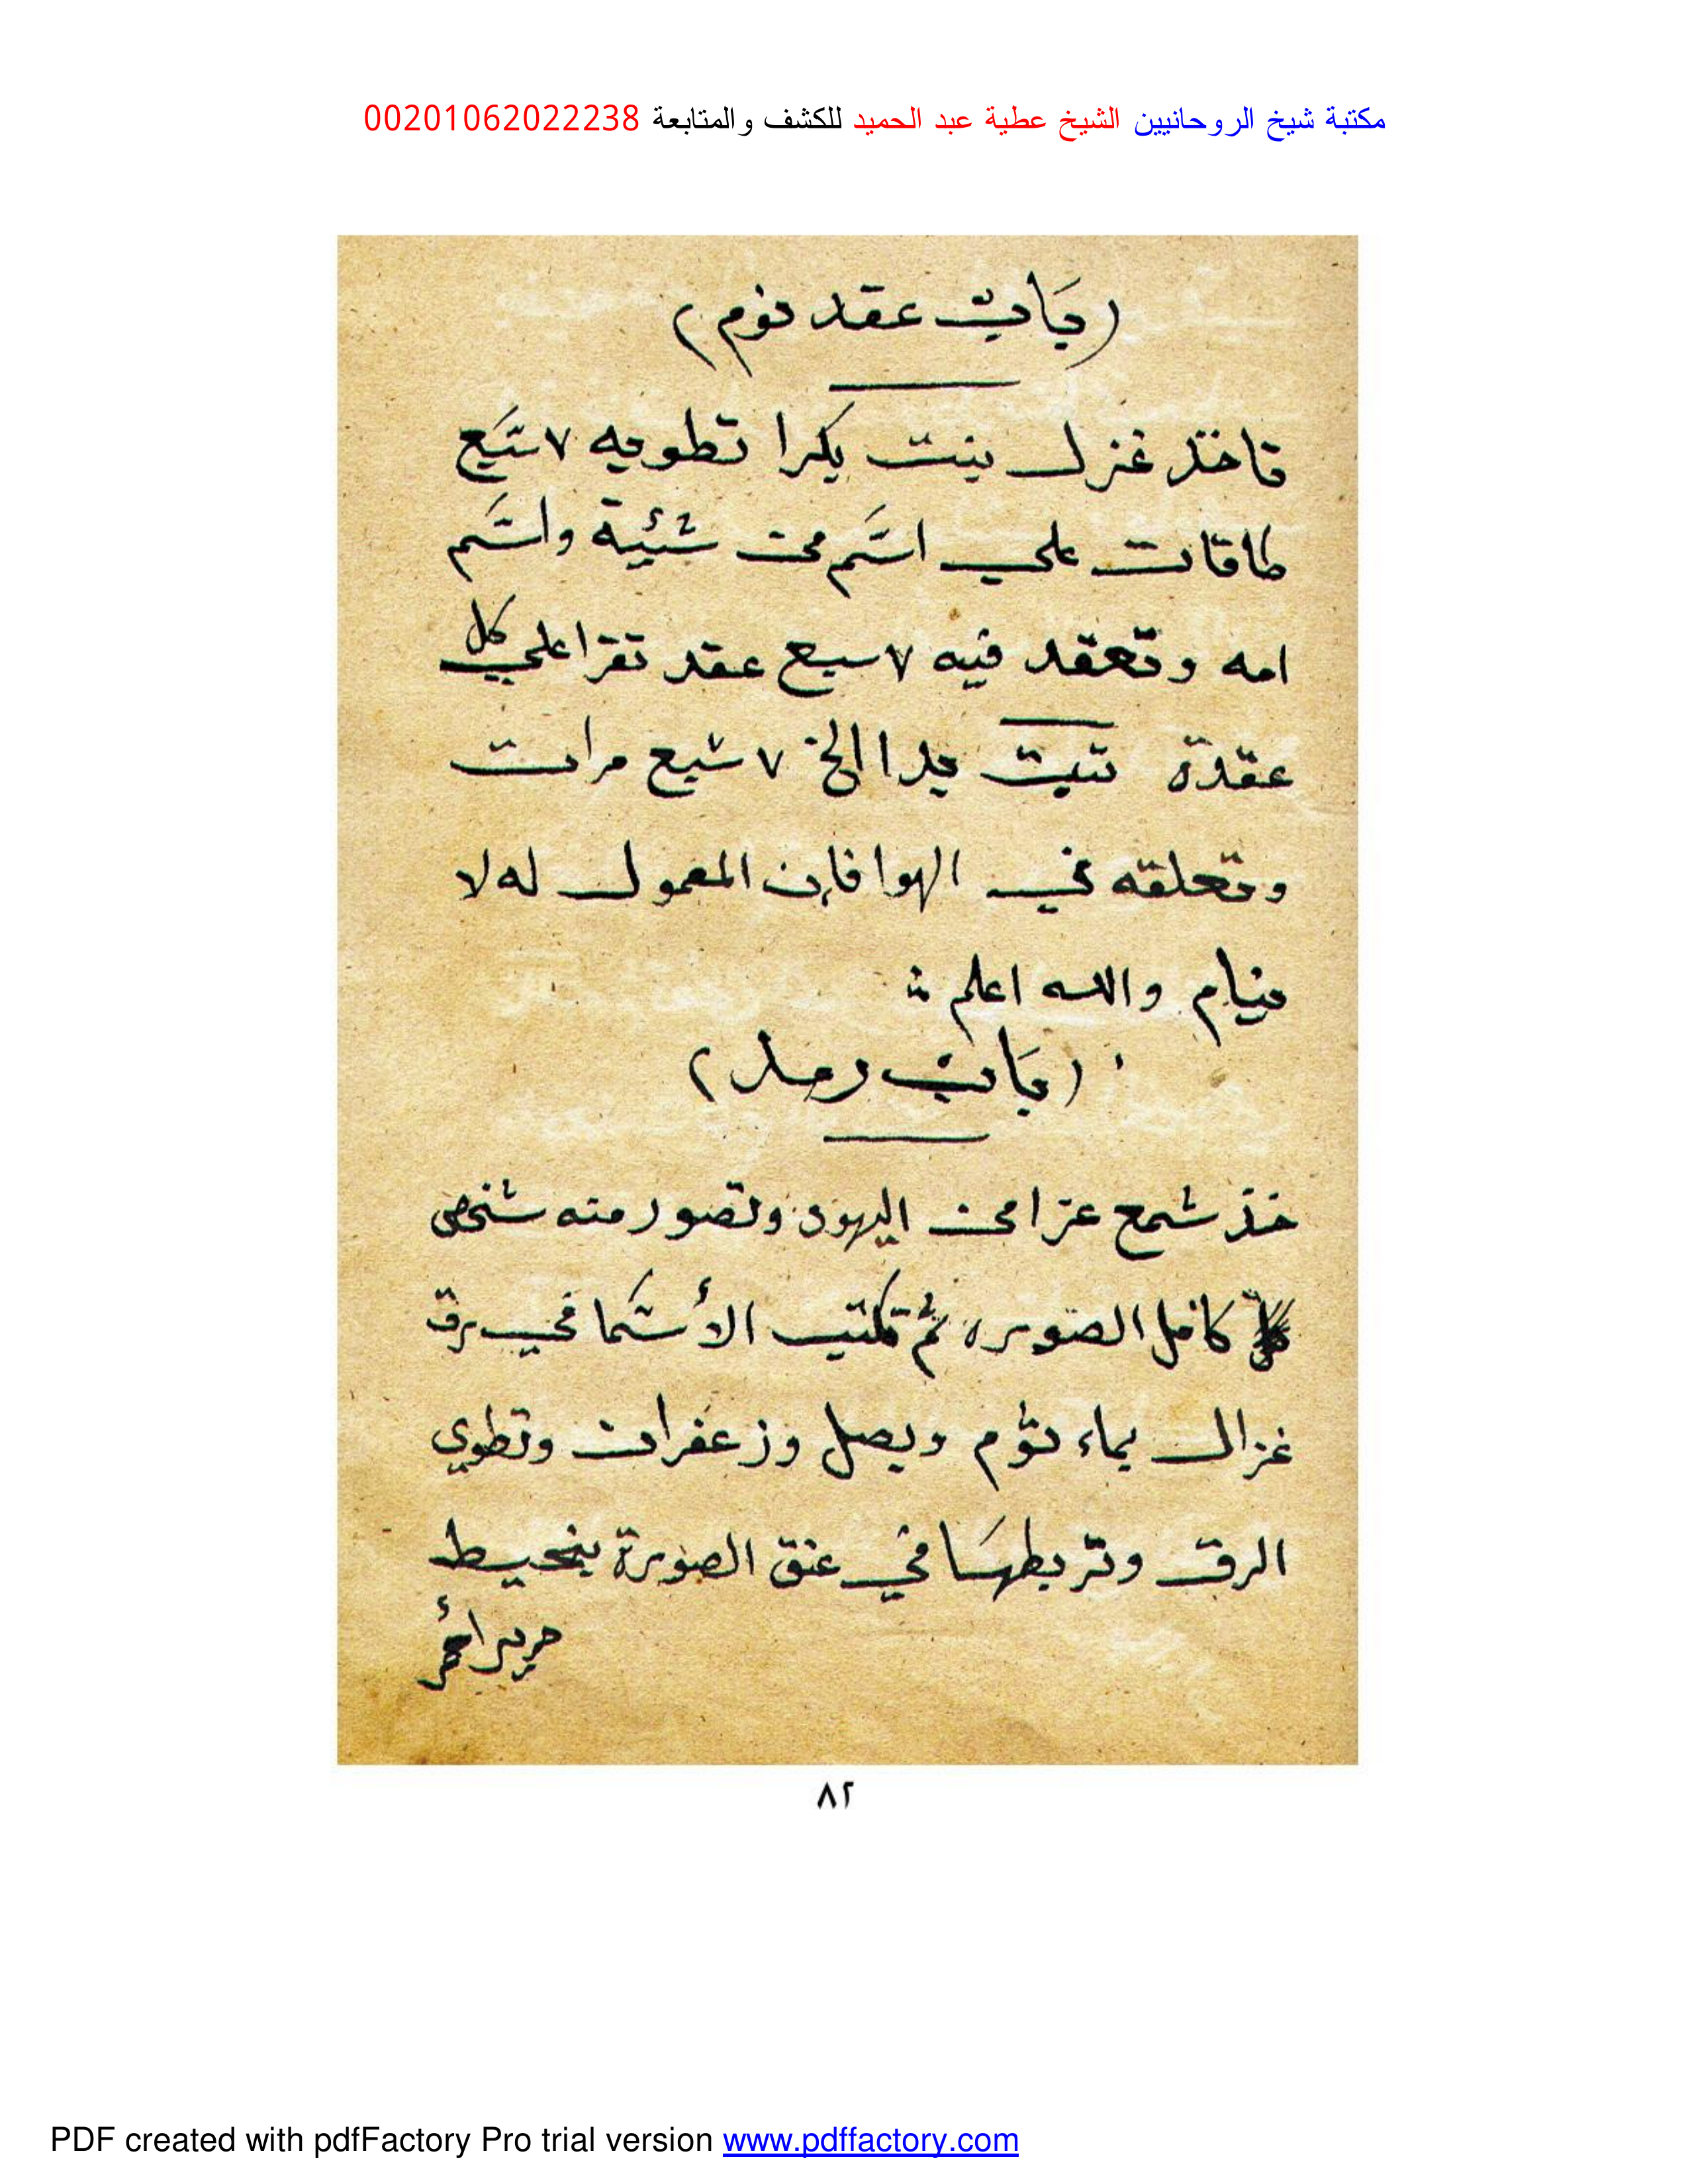 مكتبة شيخ الروحانيين الشيخ عطية عبد الحميد للكشف والمتابعة 00201062022238
(باب عقد نوم)
تاخذ غزل بنت بكرا تطويه ٧ سبع
طاقات علي اسم من شئية واسم
امه وتعقد فيه ٧ سبع عقد تقرا علي كل
عقدة تبت يدا الخ ٧ سبع مرات
وتعلقه في الهوا فإن المعمول له لا
ينام والله اعلم
(باب رمد)
خذ شمع عزا من اليهود وتصور منه شخص
كامل الصوره ثم تكتب الأسما في رق
غزال بماء ثؤم وبصل وزعفران وتطوي
الرق وتربطها في عنق الصورة بخيط
حرير أحمر
٨٢
PDF created with pdfFactory Pro trial version www.pdffactory.com